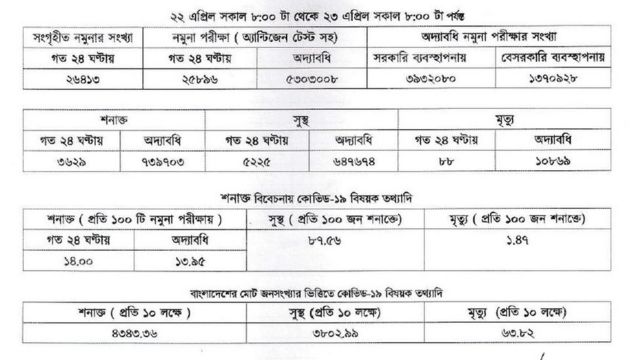 ২২ এপ্রিল সকাল ৮:০০ টা থেকে ২৩ এপ্রিল সকাল ৮:০০ টা পর্যন্ত
সংগৃহীত নমুনার সংখ্যা নমুনা পরীক্ষা ( অ্যান্টিজেন টেস্ট সহ) অদ্যাবধি নমুনা পরীক্ষার সংখ্যা
গত ২৪ ঘণ্টায় গত ২৪ ঘণ্টায় অদ্যাবধি সরকারি ব্যবস্থাপনায় বেসরকারি ব্যবস্থাপনায়
২৬৪১৩ ২৫৮৯৬ ৫৩০৩০০৮ ৩৯৩২০৮০ ১৩৭০৯২৮
শনাক্ত সুস্থ মৃত্যু
গত ২৪ ঘণ্টায় অদ্যাবধি গত ২৪ ঘণ্টায় অদ্যাবধি গত ২৪ ঘণ্টায় অদ্যাবধি
৩৬২৯ ৭৩৯৭০৩ ৫২২৫ ৬৪৭৬৭৪ ৮৮ ১০৮৬৯
শনাক্ত বিবেচনায় কোভিড-১৯ বিষয়ক তথ্যাদি
শনাক্ত ( প্রতি ১০০ টি নমুনা পরীক্ষায়) সুস্থ ( প্রতি ১০০ জন শনাক্তে) মৃত্যু ( প্রতি ১০০ জন শনাক্তে)
গত ২৪ ঘণ্টায় অদ্যাবধি ৮৭.৫৬ ১.৪৭
১৪.০০ ১৩.৯৫
বাংলাদেশের মোট জনসংখ্যার ভিত্তিতে কোভিড-১৯ বিষয়ক তথ্যাদি
শনাক্ত ( প্রতি ১০ লক্ষে ) সুস্থ (প্রতি ১০ লক্ষে) মৃত্যু (প্রতি ১০ লক্ষে)
৪৩৪৩.৩৬ ৩৮০২.৯৯ ৬৩.৮২